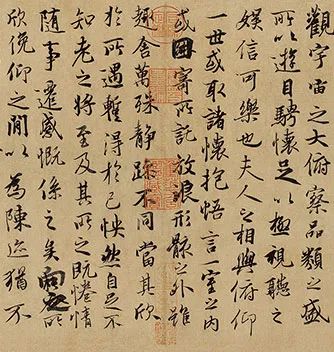 觀宇宙之大俯察品類之盛
所以遊目騁懷足以極視聽之
娛信可樂也夫人之相與俯仰
一世或取諸懷抱悟言一室之內
或因寄所託放浪形骸之外雖
趣舍萬殊靜躁不同當其欣
於所遇蹔得於己怏然自足不
知老之將至及其所之既惓情
隨事遷感慨係之矣向之所
欣俛仰之閒以為陳迹猶不